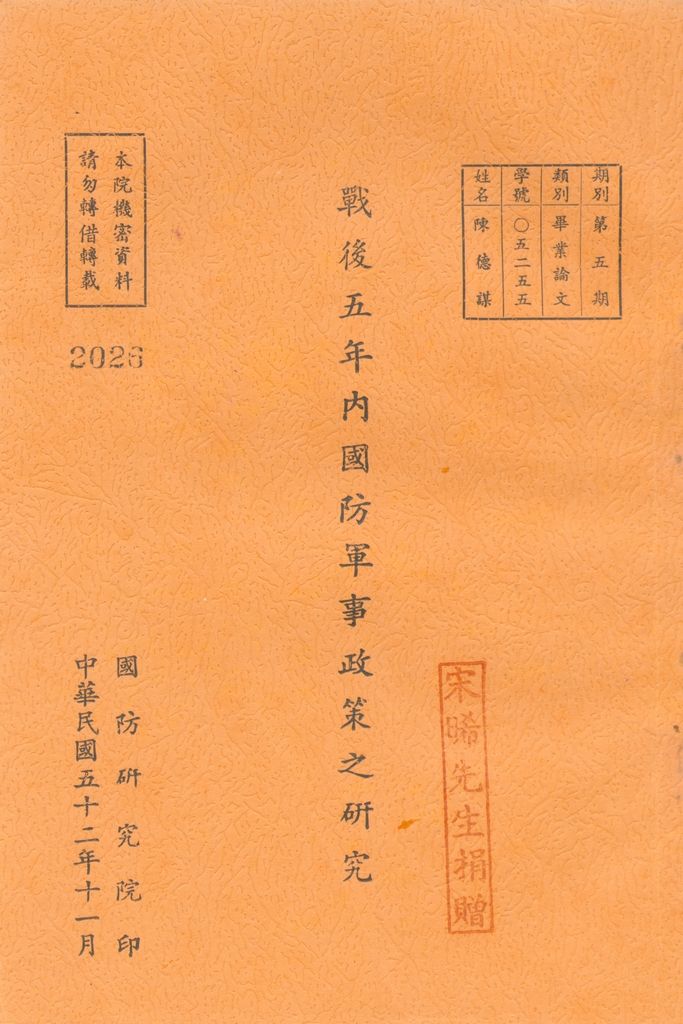 期別 第五期
類別 畢業論文
學號 〇五二五五
姓名 陳德謀
戰後五年內國防軍事政策之研究
宋晞先生捐贈
本院機密資料
請勿轉借轉載
2026
國防研究院印
中華民國五十二年十一月